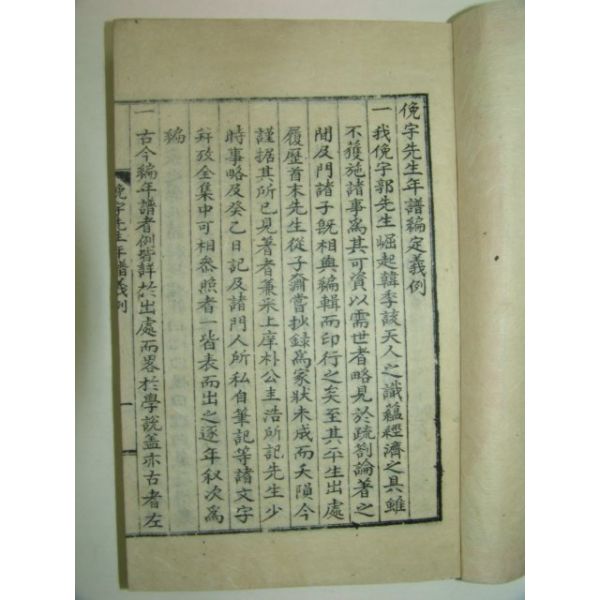 俛宇先生年譜編定義例
一我俛宇郭先生崛起韓季該天人之識蘊經濟之具雖
不獲施諸事爲其可資以需世者略見於疏劄論著之
間及門諸子旣相與編輯而印行之矣至其平生出處
履歷首末先生從子奫嘗抄錄爲家狀未成而夭隕今
謹据其所已見著者兼采上庠朴公圭浩所記先生少
時事略及癸乙日記及諸門人所私自筆記等諸文字
幷攷全集中可相叅照者一皆表而出之逐年叙次爲
編
一古今編年譜者例皆詳於出處而畧於學說盖亦古者左
俛宇先生年譜義例
一